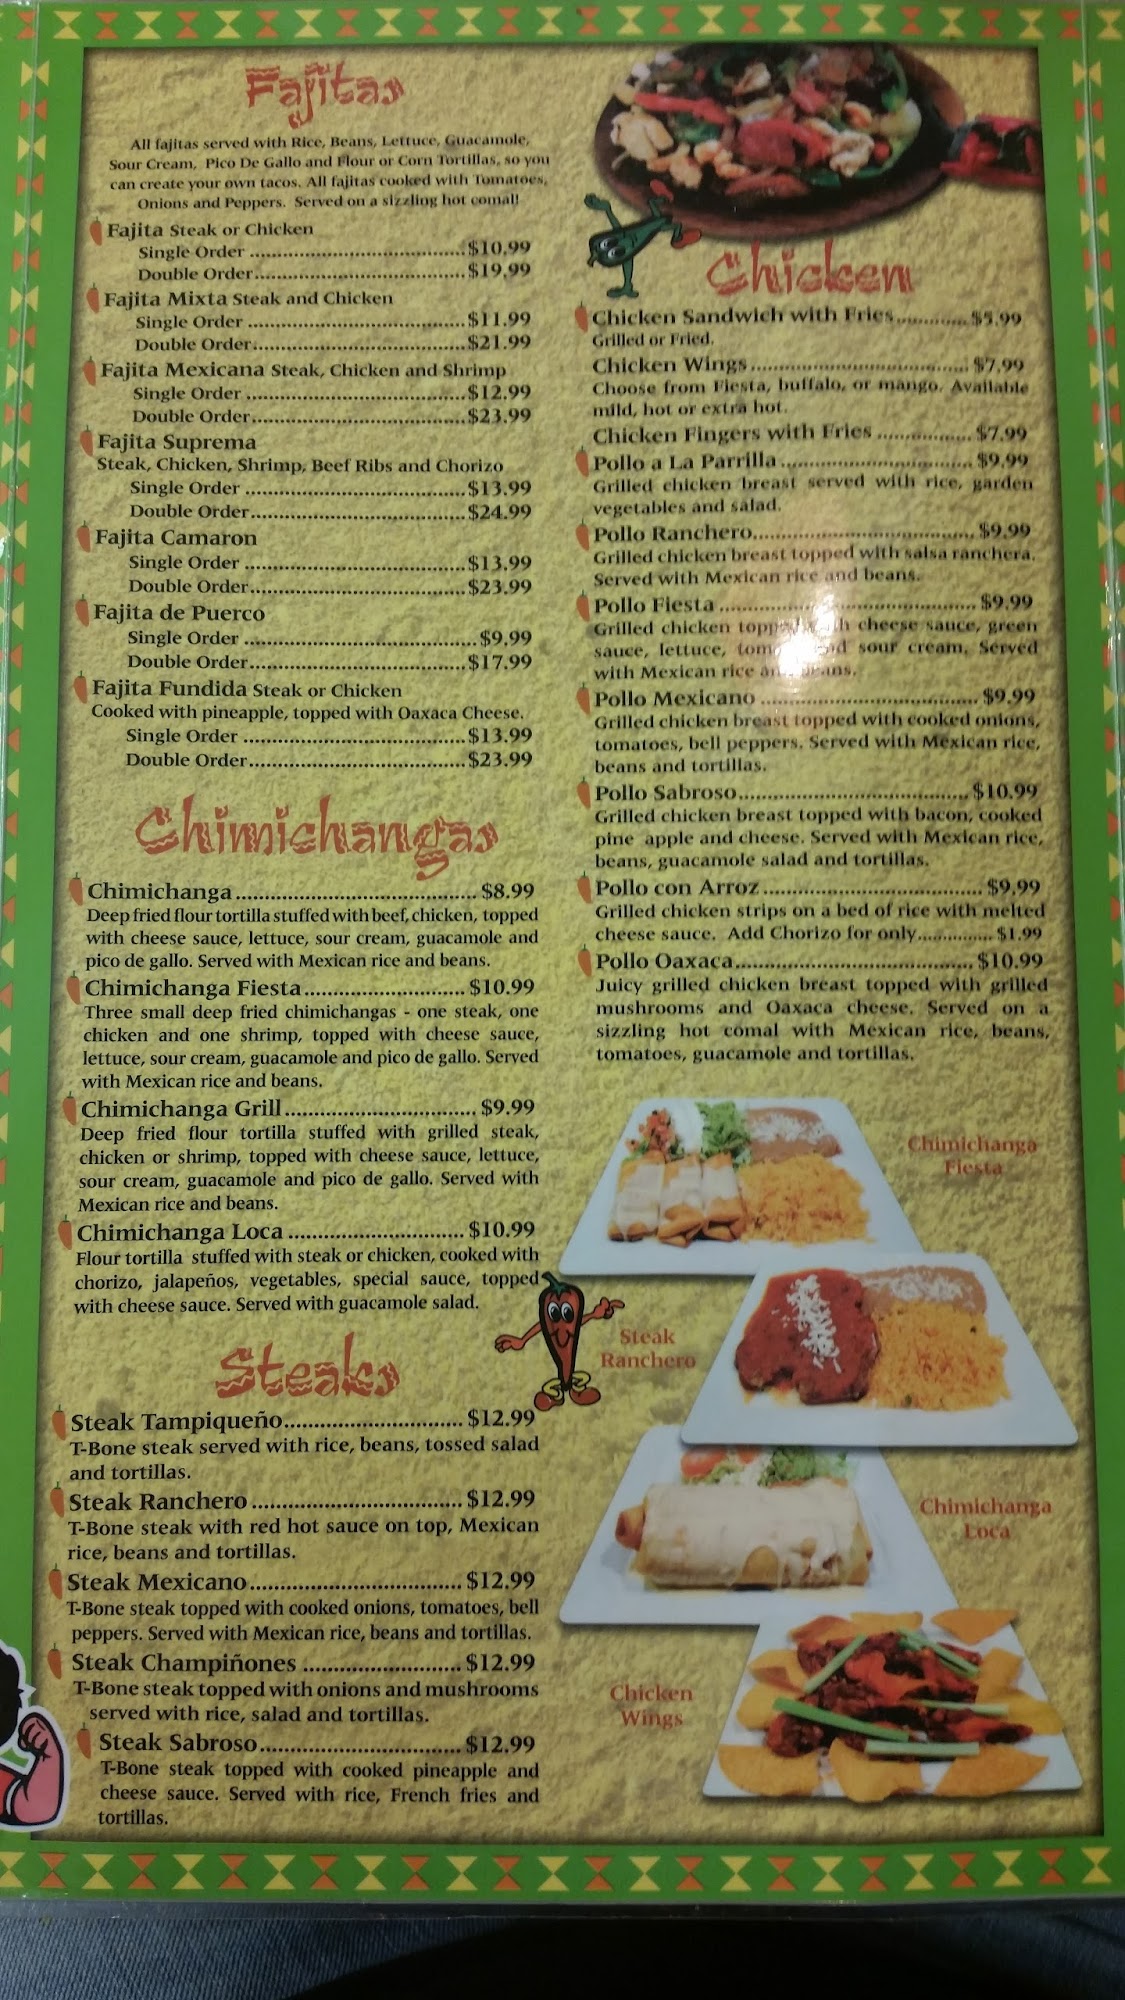 Fajitas
All fajitas served with Rice, Beans, Lettuce, Guacamole,
Sour Cream, Pico De Gallo and Flour or Corn Tortillas, so you
can create your own tacos. All fajitas cooked with Tomatoes,
Onions and Peppers. Served on a sizzling hot comal!
Fajita Steak or Chicken
Single Order ........ $10.99
Double Order........ $19.99
Fajita Mixta Steak and Chicken
Single Order ........ $11.99
Double Order........ $21.99
Fajita Mexicana Steak, Chicken and Shrimp
Single Order ........ $12.99
Double Order........ $23.99
Fajita Suprema
Steak, Chicken, Shrimp, Beef Ribs and Chorizo
Single Order ........ $13.99
Double Order........ $24.99
Fajita Camaron
Single Order ........ $13.99
Double Order........ $23.99
Fajita de Puerco
Single Order ........ $9.99
Double Order........ $17.99
Fajita Fundida Steak or Chicken
Cooked with pineapple, topped with Oaxaca Cheese.
Single Order ........ $13.99
Double Order........ $23.99
Chimichangas
Chimichanga ........ $8.99
Deep fried flour tortilla stuffed with beef, chicken, topped
with cheese sauce, lettuce, sour cream, guacamole and
pico de gallo. Served with Mexican rice and beans.
Chimichanga Fiesta ........ $10.99
Three small deep fried chimichangas - one steak, one
chicken and one shrimp, topped with cheese sauce,
lettuce, sour cream, guacamole and pico de gallo. Served
with Mexican rice and beans.
Chimichanga Grill ........ $9.99
Deep fried flour tortilla stuffed with grilled steak,
chicken or shrimp, topped with cheese sauce, lettuce,
sour cream, guacamole and pico de gallo. Served with
Mexican rice and beans.
Chimichanga Loca ........ $10.99
Flour tortilla stuffed with steak or chicken, cooked with
chorizo, jalapeños, vegetables, special sauce, topped
with cheese sauce. Served with guacamole salad.
Steaks
Steak Tampiqueño ........ $12.99
T-Bone steak served with rice, beans, tossed salad
and tortillas.
Steak Ranchero ........ $12.99
T-Bone steak with red hot sauce on top, Mexican
rice, beans and tortillas.
Steak Mexicano ........ $12.99
T-Bone steak topped with cooked onions, tomatoes, bell
peppers. Served with Mexican rice, beans and tortillas.
Steak Champiñones ........ $12.99
T-Bone steak topped with onions and mushrooms
served with rice, salad and tortillas.
Steak Sabroso ........ $12.99
T-Bone steak topped with cooked pineapple and
cheese sauce. Served with rice, French fries and
tortillas.
Chicken
Chicken Sandwich with Fries ........ $5.99
Grilled or Fried.
Chicken Wings ........ $7.99
Choose from Fiesta, buffalo, or mango. Available
mild, hot or extra hot.
Chicken Fingers with Fries ........ $7.99
Pollo a La Parrilla ........ $9.99
Grilled chicken breast served with rice, garden
vegetables and salad.
Pollo Ranchero ........ $9.99
Grilled chicken breast topped with salsa ranchera.
Served with Mexican rice and beans.
Pollo Fiesta ........ $9.99
Grilled chicken topped with cheese sauce, green
sauce, lettuce, sour cream. Served
with Mexican rice and beans.
Pollo Mexicano ........ $9.99
Grilled chicken breast topped with cooked onions,
tomatoes, bell peppers. Served with Mexican rice,
beans and tortillas.
Pollo Sabroso ........ $10.99
Grilled chicken breast topped with bacon, cooked
pine apple and cheese. Served with Mexican rice,
beans, guacamole salad and tortillas.
Pollo con Arroz ........ $9.99
Grilled chicken strips on a bed of rice with melted
cheese sauce. Add Chorizo for only ........ $1.99
Pollo Oaxaca ........ $10.99
Juicy grilled chicken breast topped with grilled
mushrooms and Oaxaca cheese. Served on a
sizzling hot comal with Mexican rice, beans,
tomatoes, guacamole and tortillas.
Chimichanga
Fiesta
Steak
Ranchero
Chimichanga
Loca
Chicken
Wings